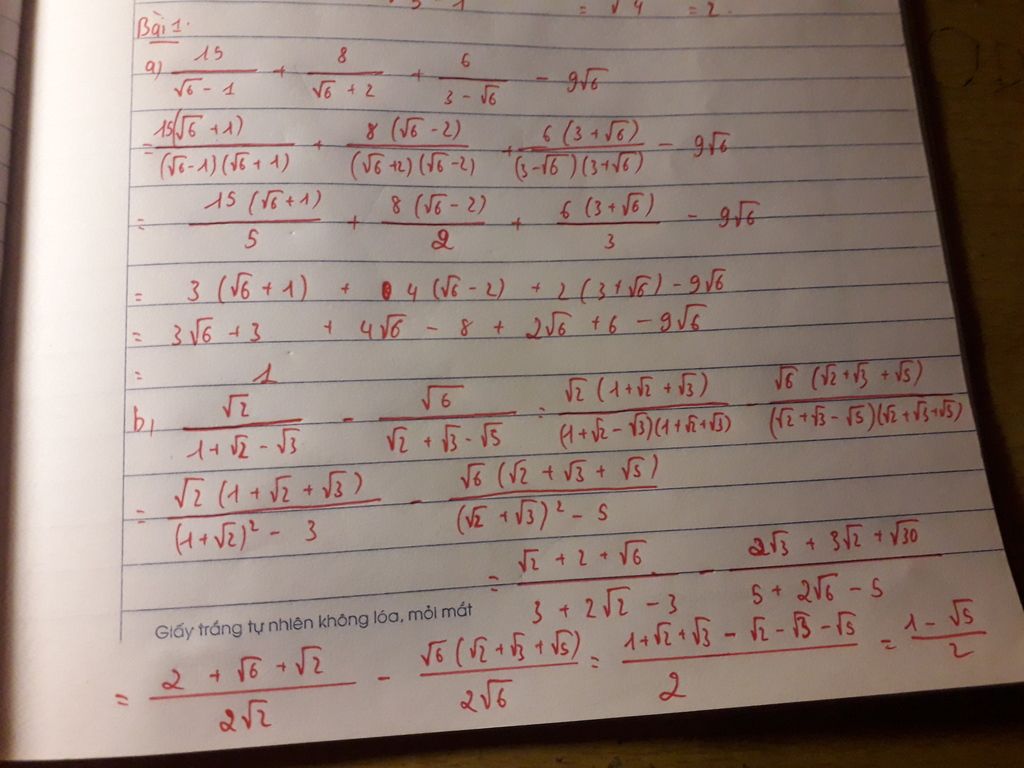 = √4 = 2.
Bài 1.
a) 15/(√6 - 1) + 8/(√6 + 2) + 6/(3 - √6) - 9√6
= 15(√6 + 1)/((√6 - 1)(√6 + 1)) + 8(√6 - 2)/((√6 + 2)(√6 - 2)) + 6(3 + √6)/((3 - √6)(3 + √6)) - 9√6
= 15(√6 + 1)/5 + 8(√6 - 2)/2 + 6(3 + √6)/3 - 9√6
= 3(√6 + 1) + 4(√6 - 2) + 2(3 + √6) - 9√6
= 3√6 + 3 + 4√6 - 8 + 2√6 + 6 - 9√6
= 1
b, √2/(1 + √2 - √3) - √6/(√2 + √3 - √5) = √2(1 + √2 + √3)/((1 + √2 - √3)(1 + √2 + √3)) - √6(√2 + √3 + √5)/((√2 + √3 - √5)(√2 + √3 + √5))
= √2(1 + √2 + √3)/((1 + √2)² - 3) - √6(√2 + √3 + √5)/((√2 + √3)² - 5)
= (√2 + 2 + √6)/(3 + 2√2 - 3) - (2√3 + 3√2 + √30)/(5 + 2√6 - 5)
Giấy trắng tự nhiên không lóa, mỏi mắt
= (2 + √6 + √2)/(2√2) - √6(√2 + √3 + √5)/(2√6) = (1 + √2 + √3 - √2 - √3 - √5)/2 = (1 - √5)/2